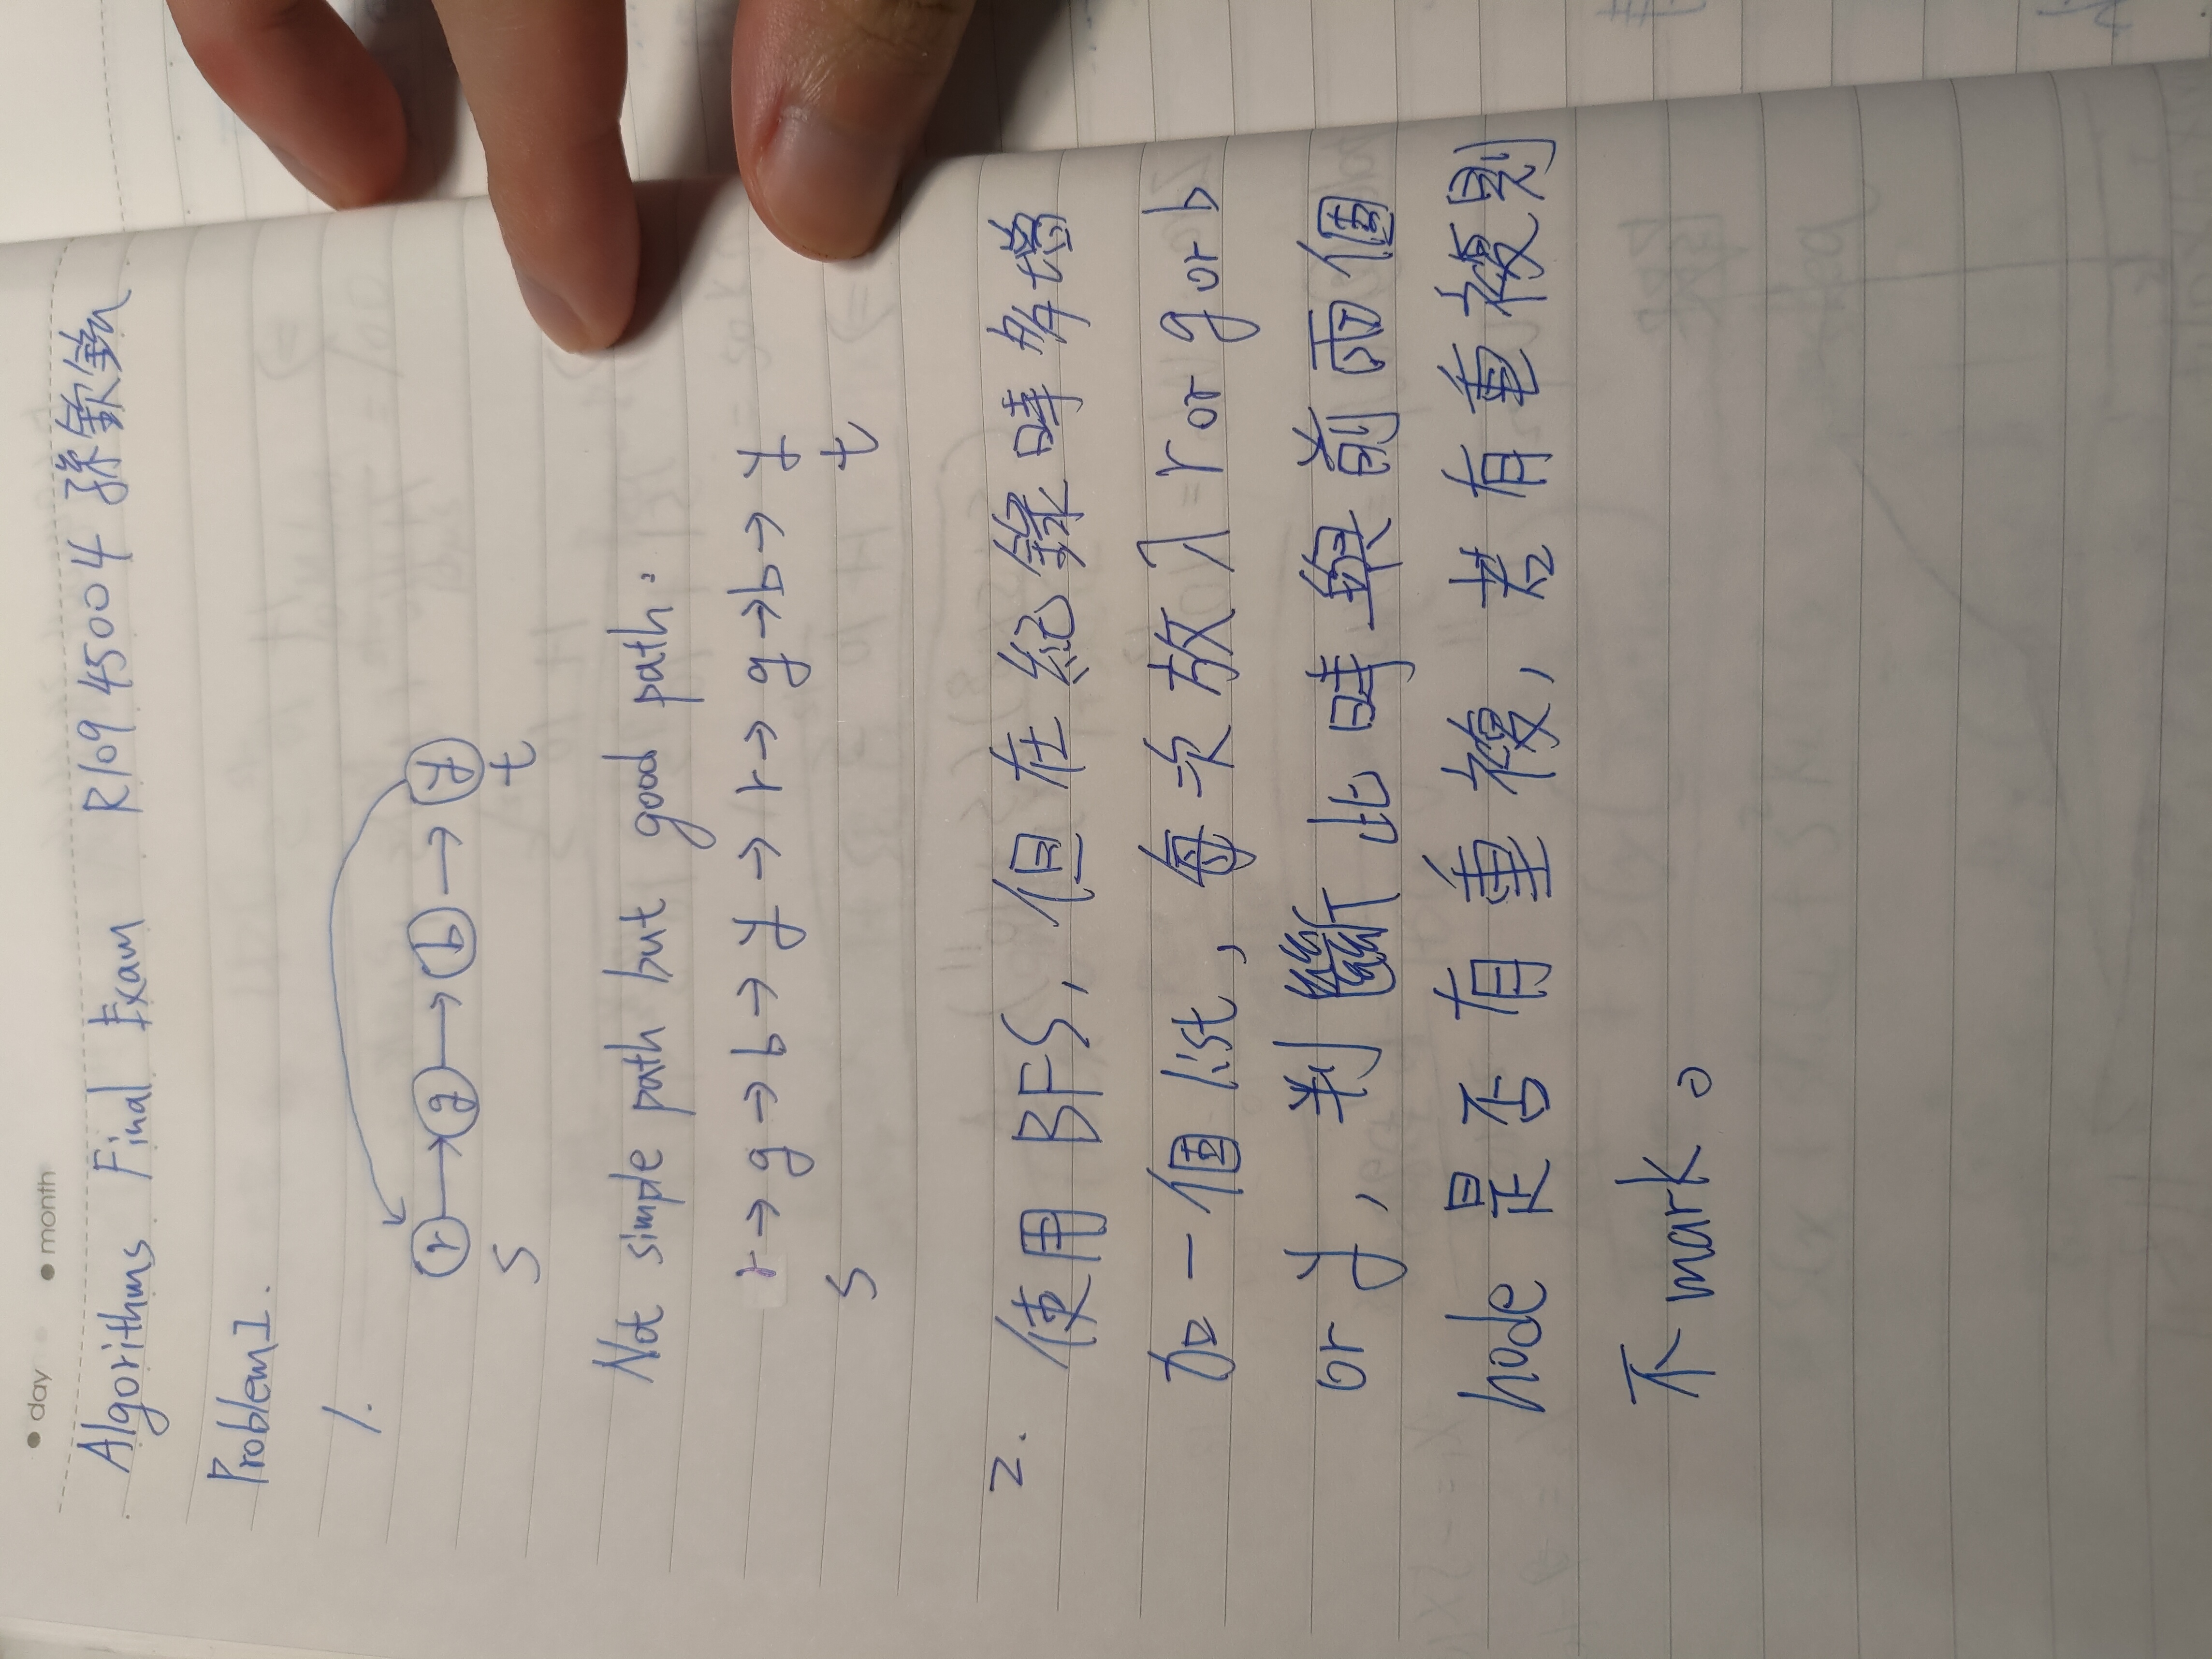 day month
Algorithms Final Exam R10945004 孫欽
Problem 1.
1.
r → g → b → y
s t
Not simple path but good path:
r → g → b → y → r → g → b → y
s t
2. 使用 BFS, 但在紀錄時多增
加一個 list, 每次放入 r or g or b
or y, 判斷此時與前兩個
node 是否有重複, 若有重複則
不 mark。